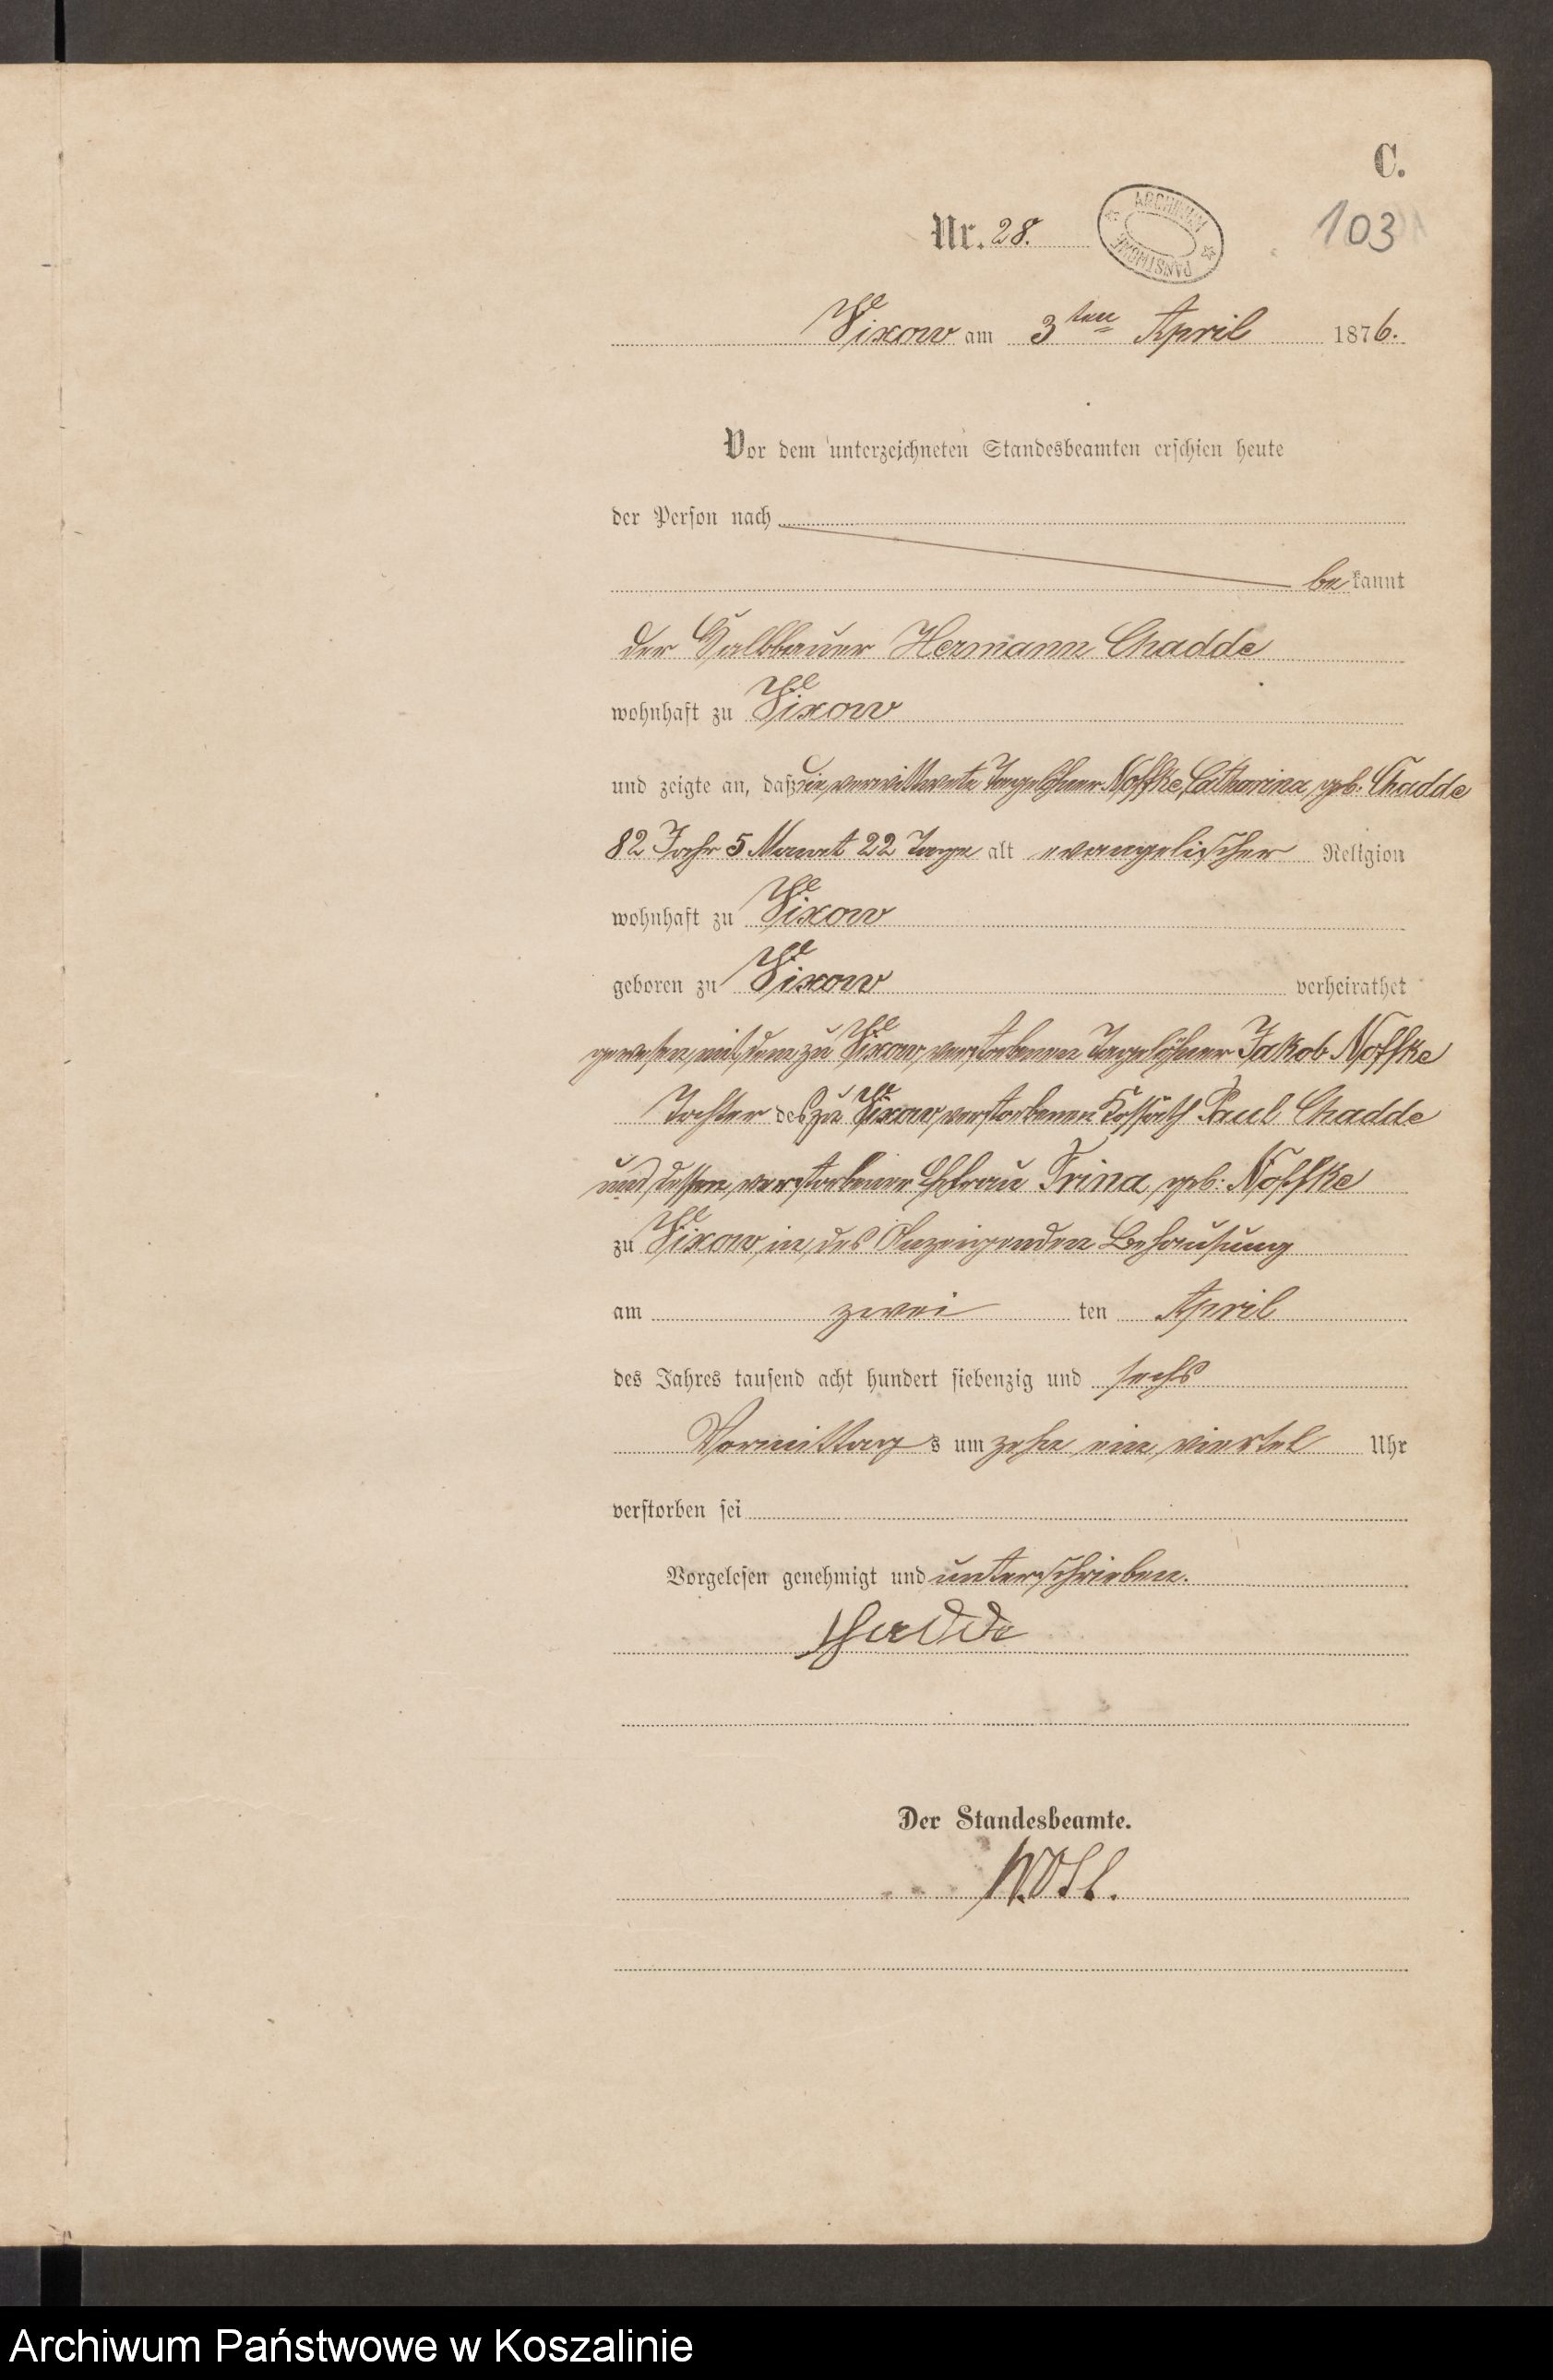 C.
Nr. 28.
ARCHIWUM PAŃSTWOWE
103
Wixow am 3ten April 1876.
Vor dem unterzeichneten Standesbeamten erschien heute
der Person nach
bekannt
der Halbbauer Hermann Chadde
wohnhaft zu Wixow
und zeigte an, daß die verwittwete Tagelöhner Noffke, Catharina, geb. Chadde
82 Jahr 5 Monat 22 Tage alt evangelischer Religion
wohnhaft zu Wixow
geboren zu Wixow verheirathet
gewesen mit dem zu Wixow verstorbenen Tagelöhner Jakob Noffke
Tochter des zu Wixow verstorbenen Kossäth Paul Chadde
und dessen verstorbener Ehfrau Trina geb: Noffke
zu Wixow in des Anzeigenden Behausung
am zwei ten April
des Jahres tausend acht hundert siebenzig und sechs
Vormittags um zehn ein viertel Uhr
verstorben sei
Vorgelesen genehmigt und unterschrieben.
Chadde
Der Standesbeamte.
Archiwum Państwowe w Koszalinie